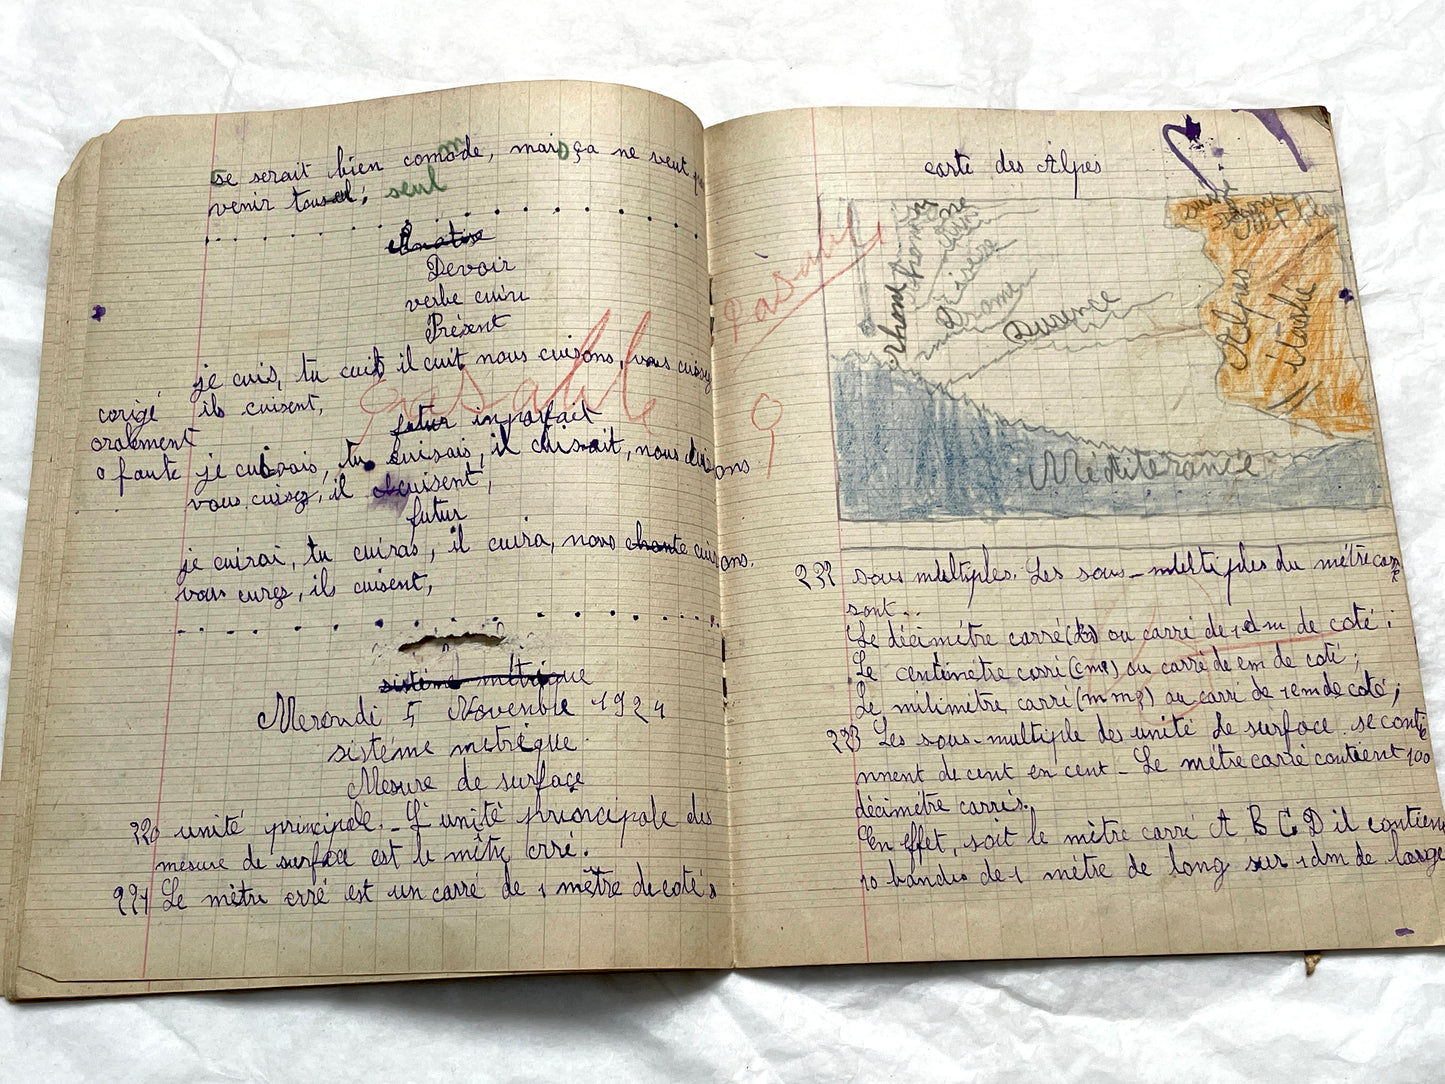 se serait bien comode, mais ça ne veut pas
venir tousel; seul
Devoir
verbe cuire
Présent
je cuis, tu cuis il cuit nous cuisons, vous cuisez
ils cuisent,
corigé
oralement
0 faute
Passable
futur inparfait
je cuisais, tu cuisais, il cuisait, nous cuisons
vous cuisez, il cuisent,
futur
je cuirai, tu cuiras, il cuira, nous chante cuisons.
vous curez, ils cuisent,
sistéme métrique
Mercredi 5 Novenble 1924
sistéme metréque
Mesure de surface
220 unité principale. _ L'unité principale des
mesure de surface est le mètre crré.
221 Le mètre crré est un carré de 1 mètre de coté
carte des Alpes
Passable
9
rhone
Isère
Drome
Durence
Alpes
italie
Méditérance
222 sous multiples. Les sous-multiples du métre carré
sont..
Le décimétre carré() ou carré de 1 dm de coté;
Le centimétre carré (cmq) ou carré de cm de coté;
Le milimétre carré (mmq) ou carré de 1 cm de coté;
223 Les sous-multiple des unité de surface se conti
nnent de cent en cent _ Le métre carré contient 100
décimétre carrés.
En effet, soit le mètre carré A B C D il contien
10 bandes de 1 mètre de long sur 1 dm de large